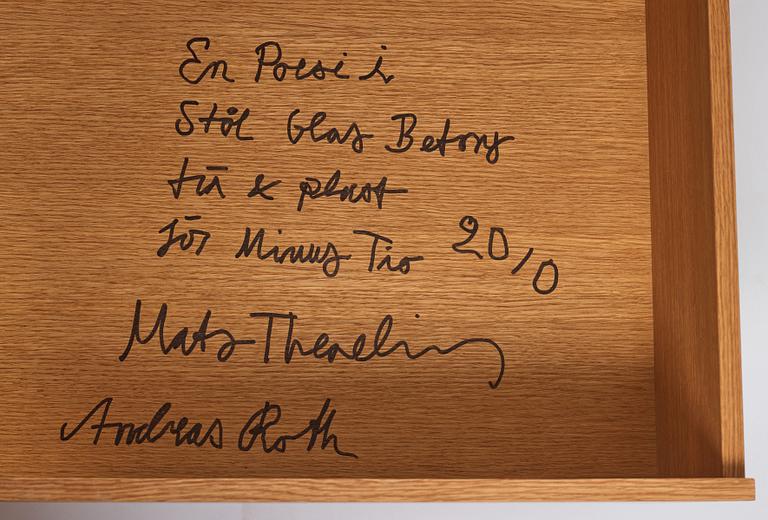 En Poesi i
Stål Glas Betong
trä & plast
för Minus Tio 20/0
Mats Theselius
Andreas Roth